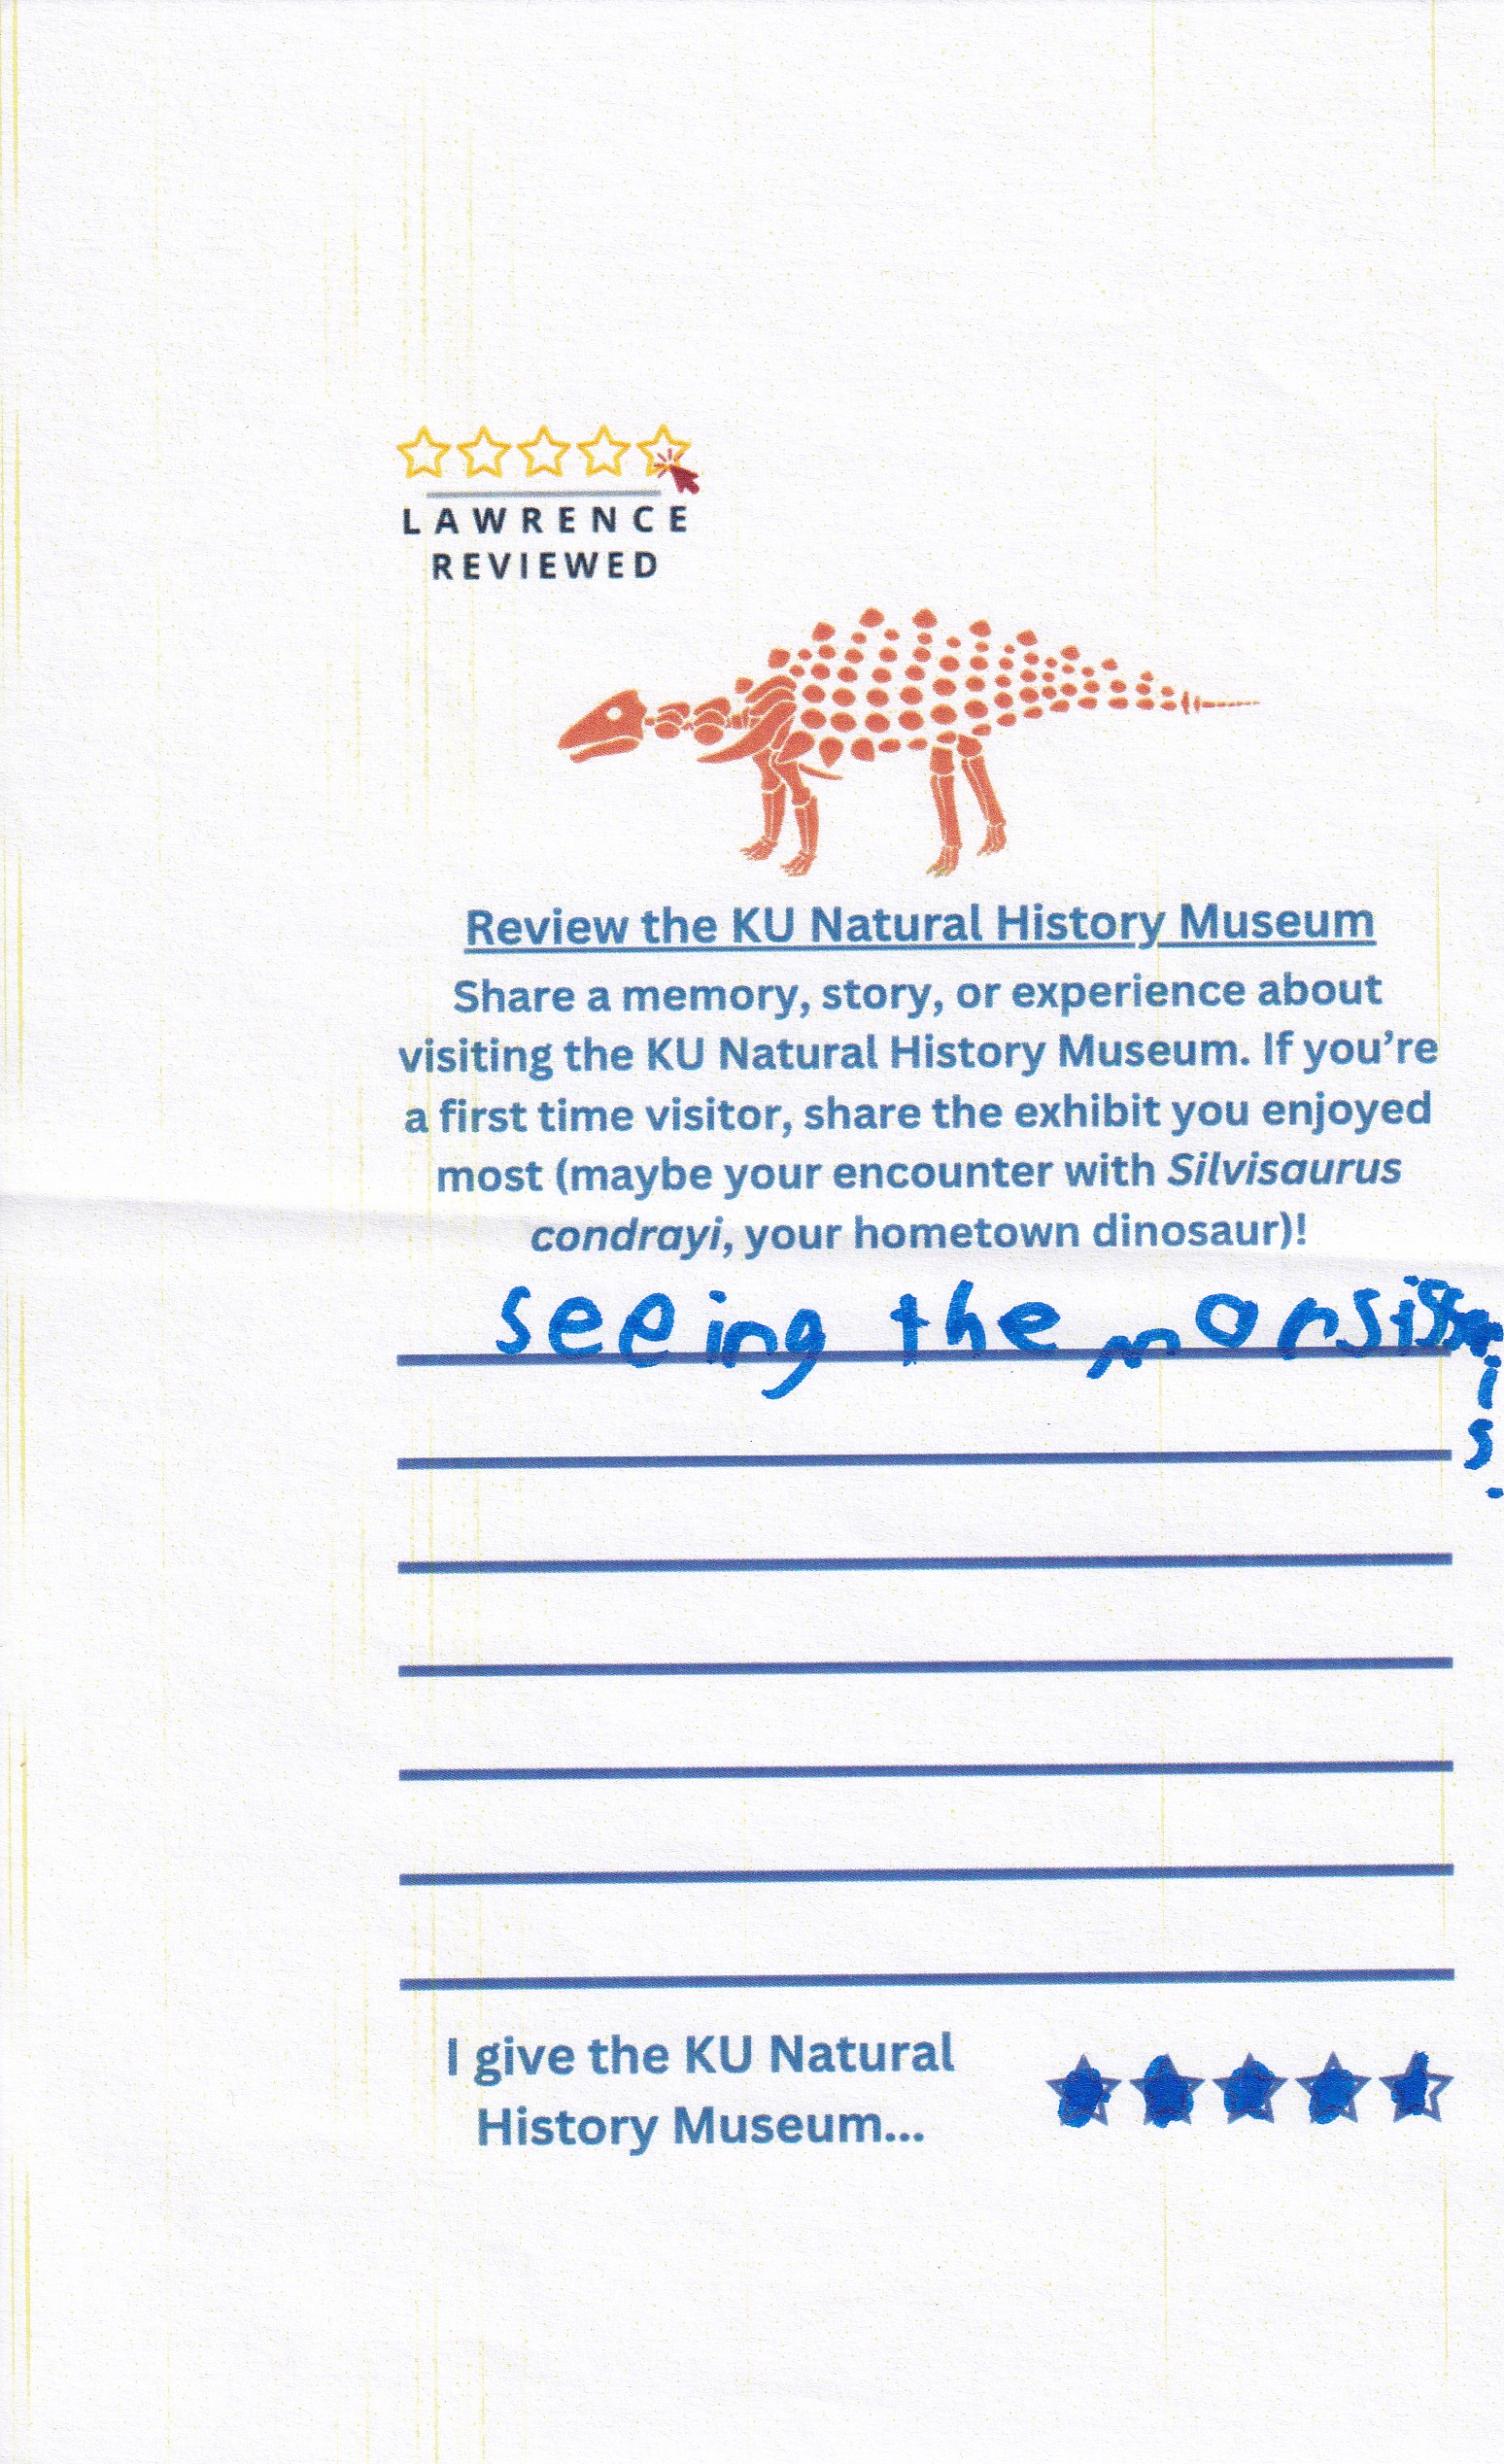 LAWRENCE
REVIEWED
Review the KU Natural History Museum
Share a memory, story, or experience about
visiting the KU Natural History Museum. If you're
a first time visitor, share the exhibit you enjoyed
most (maybe your encounter with Silvisaurus
condrayi, your hometown dinosaur)!
seeing the
I give the KU Natural
History Museum...